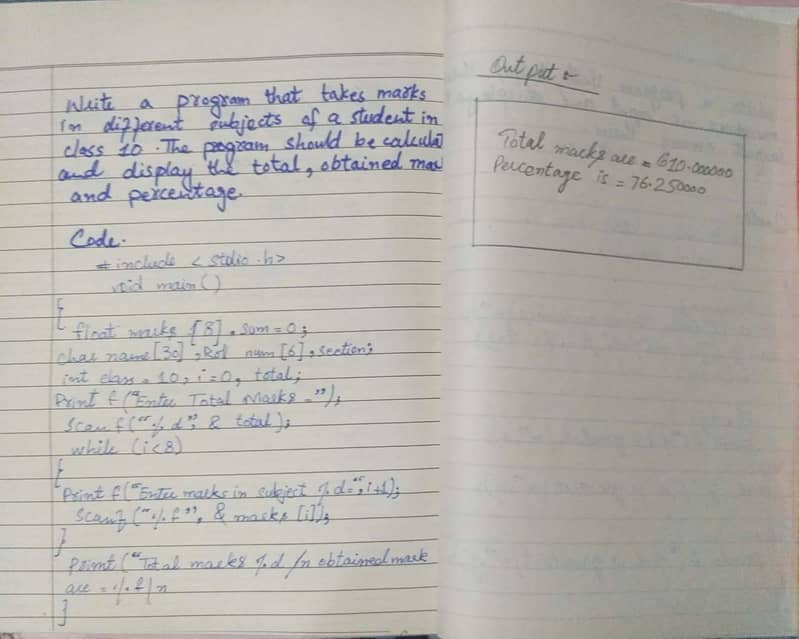 Write a program that takes marks
in different subjects of a student in
class 10. The program should be calcula
and display the total, obtained mar
and percentage.
Code.
# include < stdio.h>
void main()
{
float marks [8], sum = 0;
char name[30], Rol num [6], section;
int class = 10, i=0, total;
Print f ("Enter Total Marks = ");
Scan f ("% d", & total);
while (i<8)
{
Print f ("Enter marks in subject %d=", i+1);
Scanf ("%f", & marks [i]);
}
Print ("Total marks %d /n obtained mark
are = %f \n
}
Output :-
Total marks are = 610.000000
Percentage is = 76.250000